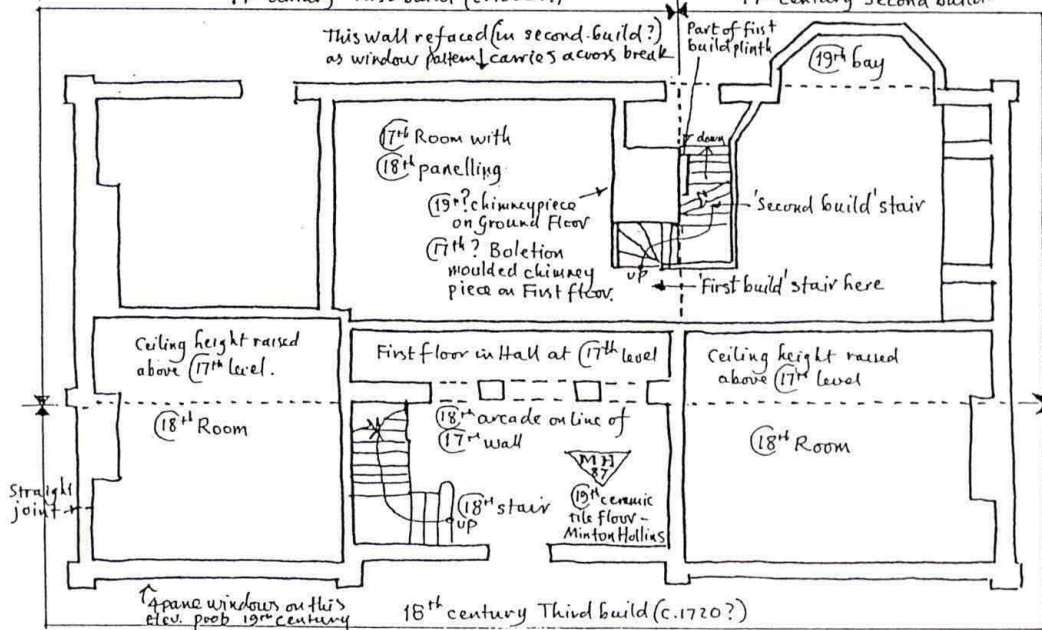 17th century First build
17th century Second build
This wall refaced (in second build?)
as window pattern ↓ carries across break
Part of first
build plinth
19th bay
17th Room with
18th panelling
19th? chimneypiece
on Ground Floor
17th? Boletion
moulded chimney
piece on First floor.
down
'Second build' stair
up
'First build' stair here
Ceiling height raised
above 17th level.
First floor in Hall at 17th level
Ceiling height raised
above 17th level
18th Room
18th arcade on line of
17th wall
18th Room
MH
87
Straight
joint
18th stair
up
19th ceramic
tile floor -
Minton Hollins
4 pane windows on this
elev. prob 19th century
18th century Third build (c.1720?)